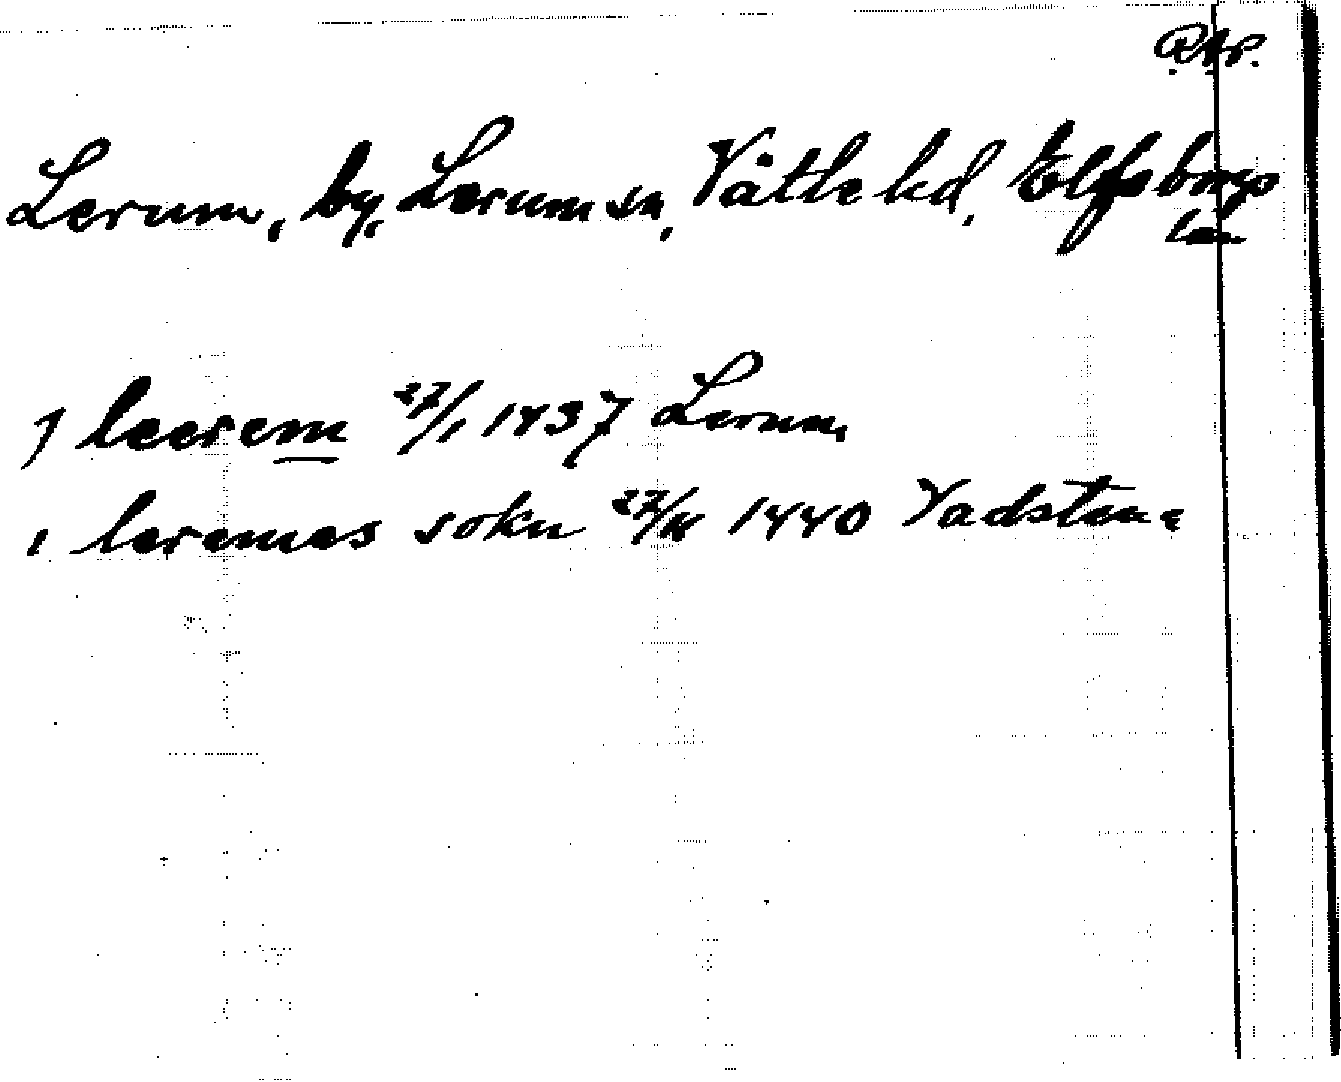 RAp.
Lerum, by, Lerum sn, Vättle hd, Elfsborgs
län
j leerem 27/1 1437 Lerum,
i leremes sokn 27/11 1440 Vadstena